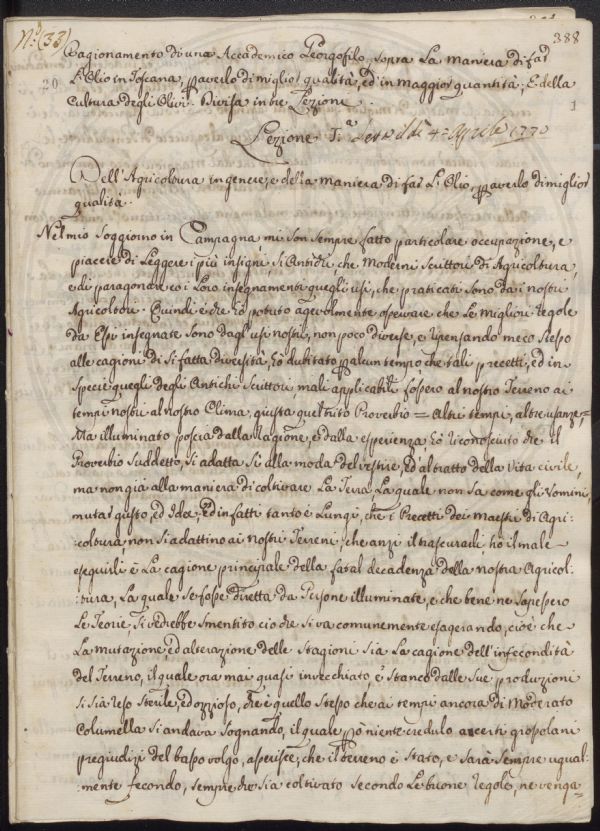 N.° (33)
388
20
1
Ragionamento di una Accademico Georgofilo, sopra La maniera di far
L'Olio in Toscana, p averlo di miglior qualità, ed in maggior quantità; E della
Cultura degli Olivi. Divisa in tre Lezione.
Lezione I.a Letta il dì 4 Aprile 1770
Dell'Agricoltura in genere, e della maniera di far L'Olio, p averlo di miglior
qualità.
Nel mio soggiorno in Campagna mi son sempre fatto particolare occupazione, e
piacere di Leggere i più insigni, sì Antichi, che Moderni Scrittori di Agricoltura,
e di paragonare co i Loro insegnamenti quegli usi, che praticati sono da i nostri
Agricoltori. Quindi è che hò potuto agevolmente osservare che Le Migliori regole
da Essi insegnate sono dagl'usi nostri, non poco diverse, e ripensando meco stesso
alle cagioni di sì fatta diversità, hò dubitato p alcun tempo che tali precetti, ed in
specie quegli degli Antichi Scrittori, mali applicabili fossero al nostro Terreno ai
tempi nostri al nostro Clima, giusta quel trito Proverbio = Altri tempi, altre usanze =
Ma illuminato poscia dalla Ragione, e dalla esperienza hò riconosciuto che il
Proverbio suddetto, si adatta sì alla moda del vestire, Ed al tratto della Vita civile,
ma non già alla maniera di coltivare La Terra, La quale non sa come gli Uomini,
mutar gusto, ed Idee, Ed infatti tanto è Lungi, che i Precetti dei maestri di Agri:
:coltura, non si adattino ai nostri Terreni, che anzi il trascurarli, hò il male
eseguirli è La cagione principale della fatal decadenza della nostra Agricol:
:tura, La quale se fosse diretta da Persone illuminate, e che bene ne sapessero
Le Teorie, si vedrebbe smentito ciò che si va comunemente esagerando, cioè che
La mutazione, ed alterazione delle Stagioni sia La cagione dell'infecondità
del Terreno, il quale ora mai quasi invecchiato, e stanco dalle sue produzioni
si sia reso sterile, ed ozzioso, che è quello stesso che ai tempi ancora di Moderato
Columella si andava sognando, il quale p niente credulo a certi grossolani
pregiudizi del basso volgo, asserisce, che il terreno è stato, e sarà sempre ugual:
:mente fecondo, sempre che sia coltivato secondo Le buone regole, ne venga=